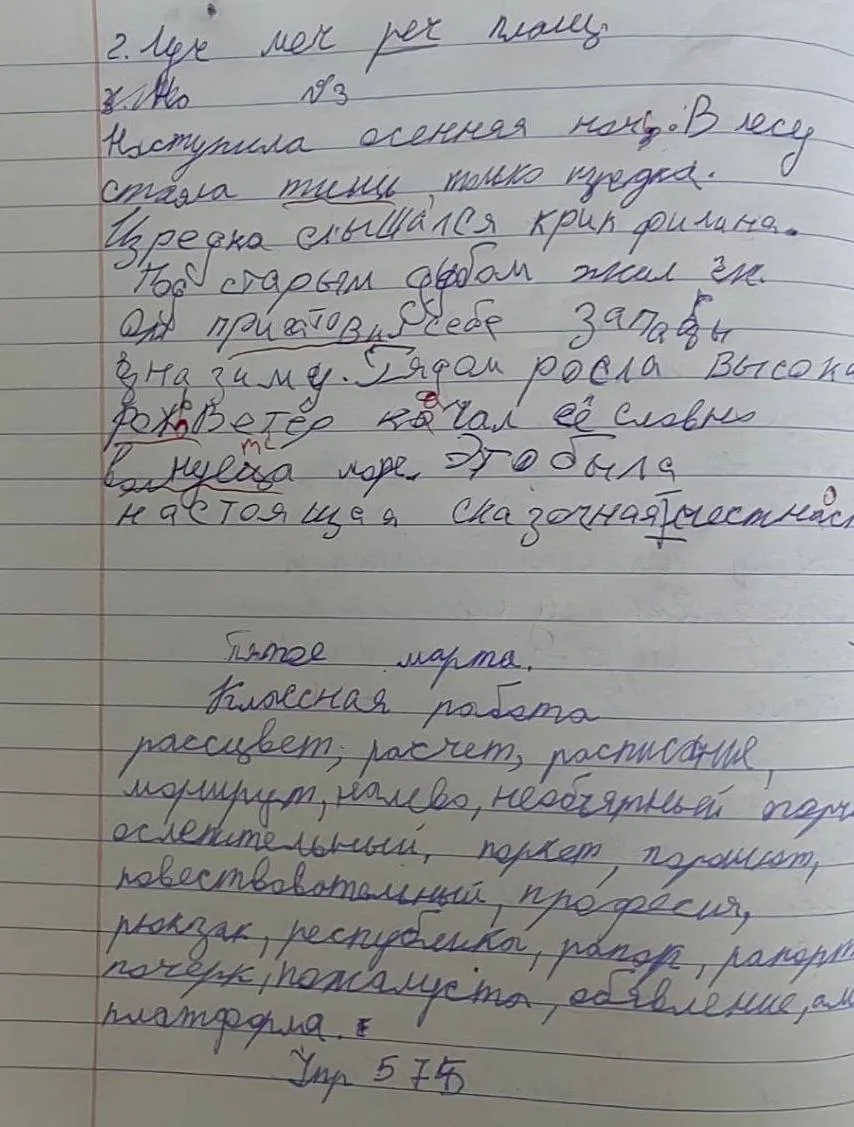 2. Луч меч реч плащ.
№3
Наступила осенняя ночь. В лесу
стаяла тишь, только изредка.
Изредка слышался крик филина.
Под старым дубом жил ёж.
Он пригатовил себе запасы
на зиму. Рядом росла высока
рожь. Ветер качал её словно
волнуеца море. Это была
настоящая сказочная
Пятое марта.
Классная работа
рассцвет, расчет, расписание,
маршрут, налево, необъятный
ослепительный, паркет, парашют,
повествовательный, професия,
рюкзак, республика, рапор, рапорт
почерк, пожалуста, объявление,
платформа.
Упр 575